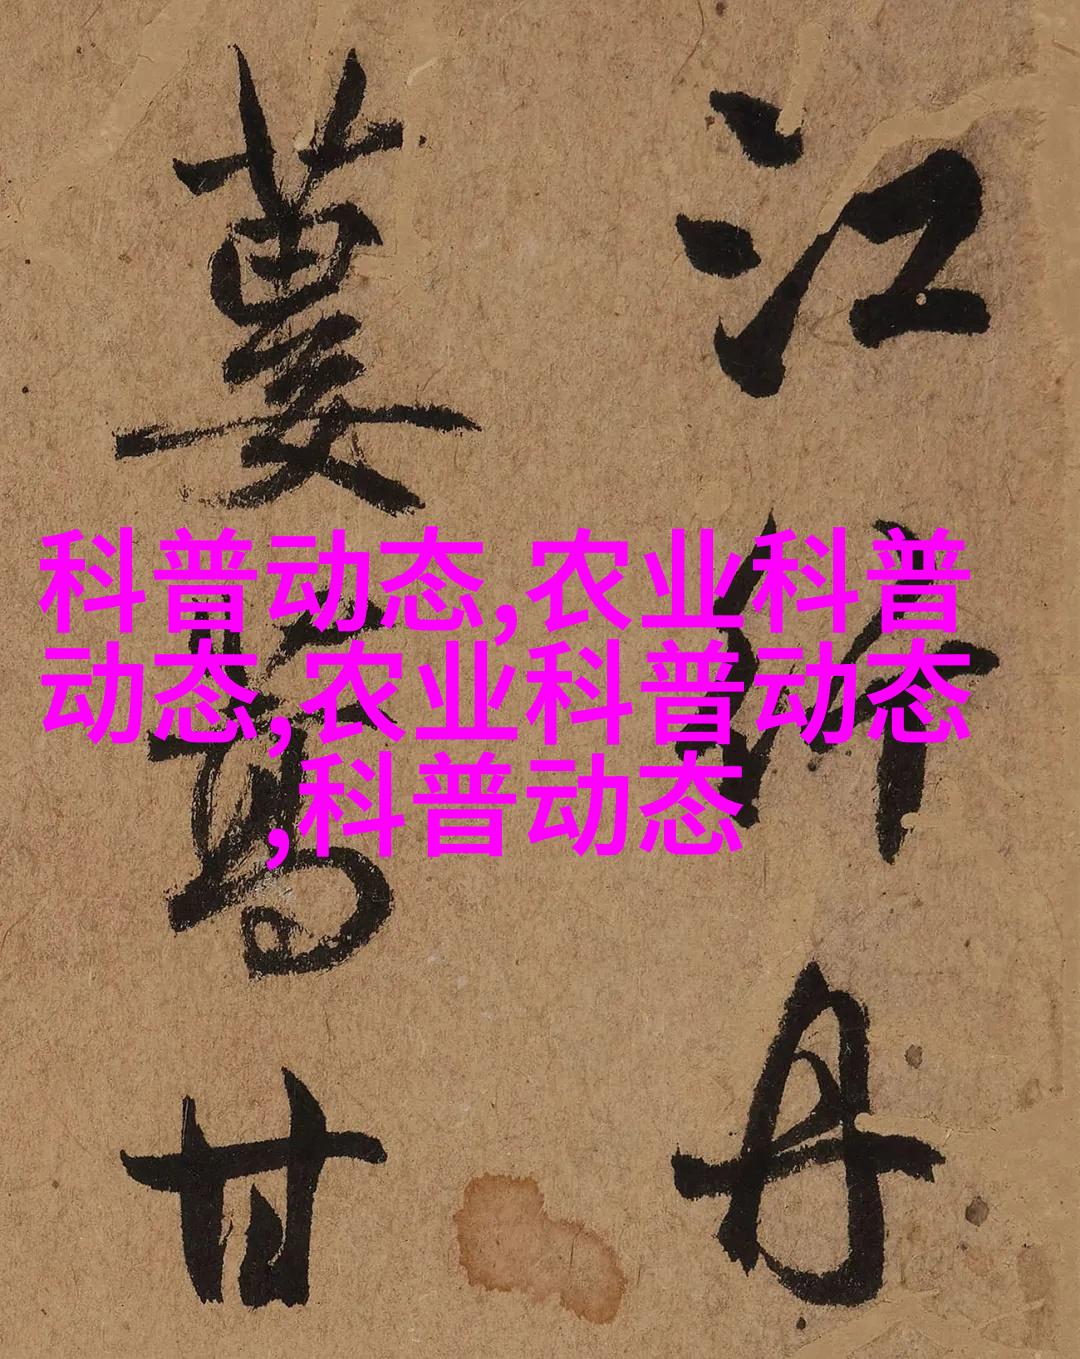 江浒丹
蔓荔葛甘
科普动态,农业科普
动态,农业科普动态
,科普动态